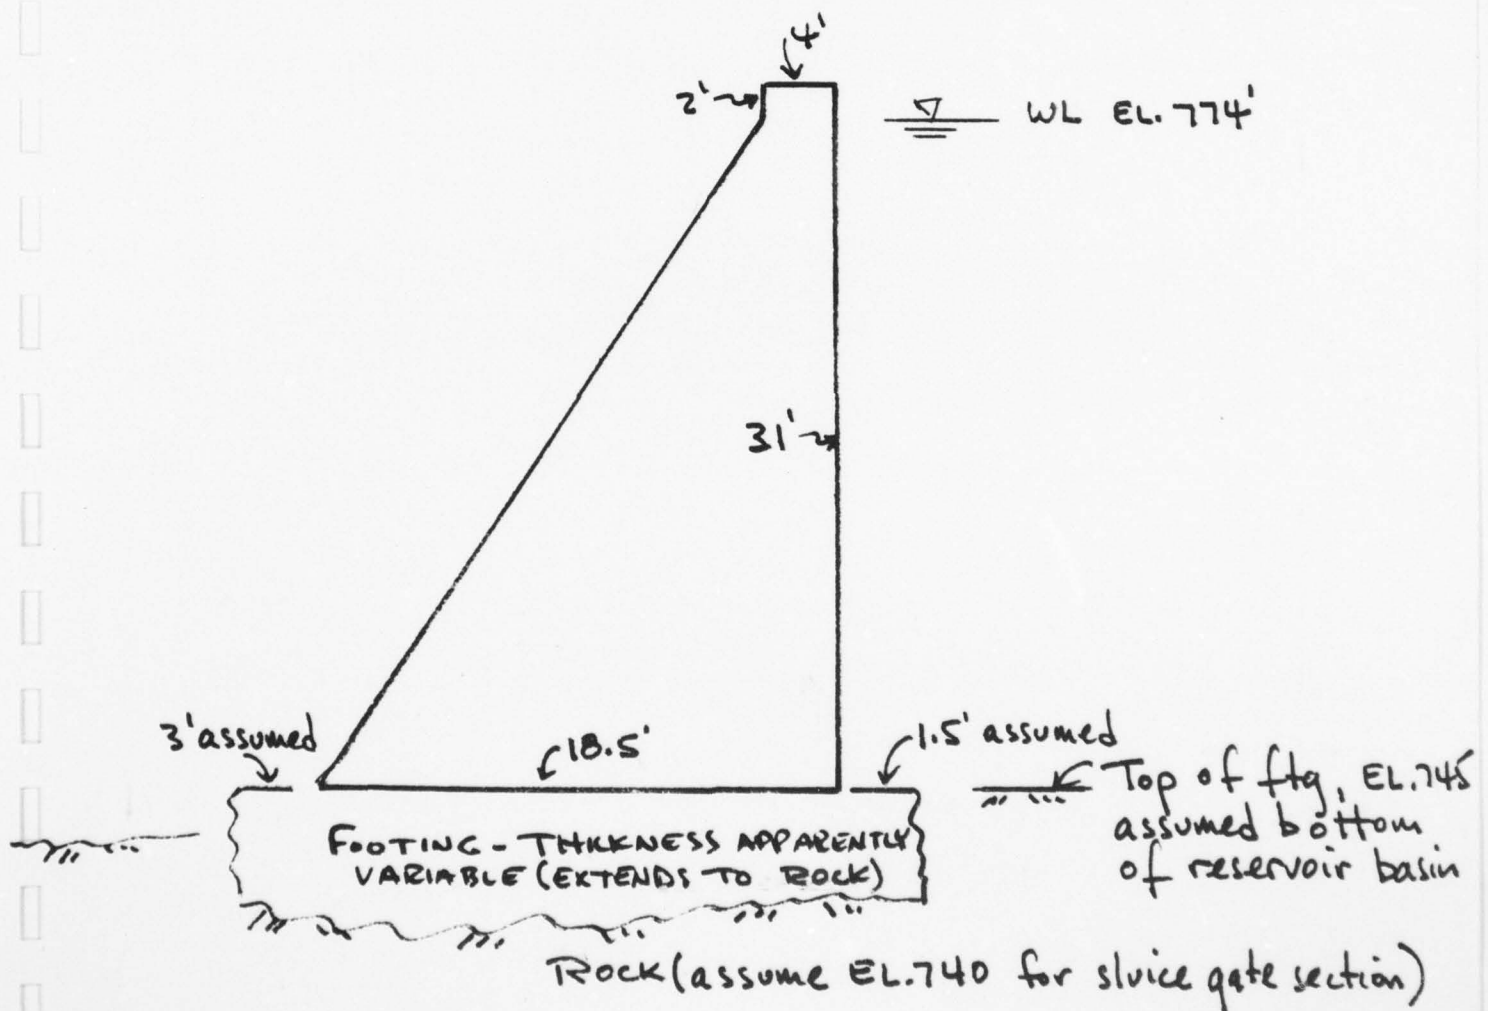 4'
2'
WL EL.774'
31'
3' assumed
18.5'
1.5' assumed
Top of ftg, EL.745
assumed bottom
of reservoir basin
FOOTING - THICKNESS APPARENTLY
VARIABLE (EXTENDS TO ROCK)
ROCK (assume EL.740 for sluice gate section)